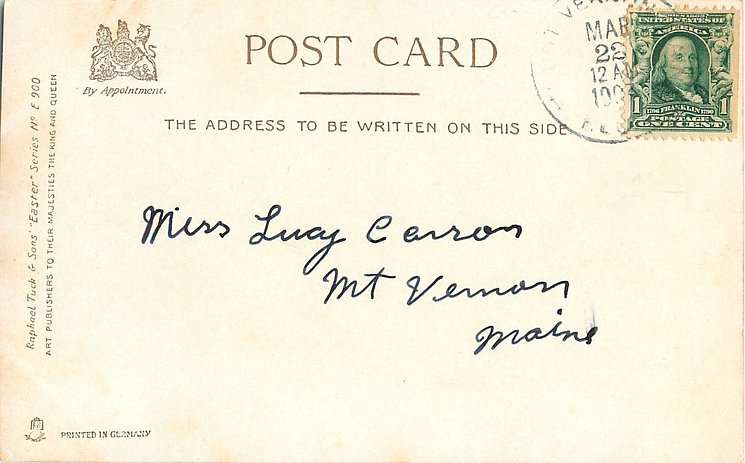 POST CARD
By Appointment.
THE ADDRESS TO BE WRITTEN ON THIS SIDE
MAR
22
12
UNITED STATES OF
AMERICA
1 1706 FRANKLIN 1790 1
POSTAGE
ONE CENT
Raphael Tuck & Sons' "Easter" Series Nº E 900
ART PUBLISHERS TO THEIR MAJESTIES THE KING AND QUEEN
Miss Lucy Carson
Mt Vernon
Maine
PRINTED IN GERMANY